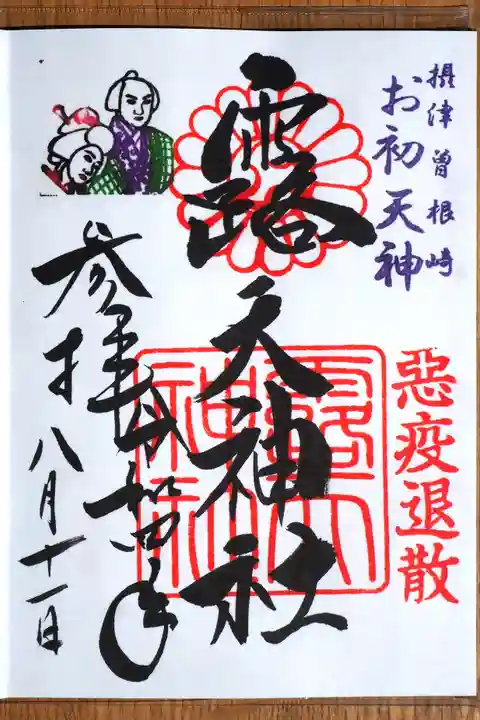 摂津曽根崎
お初天神
惡疫退散
露天神社
露天
神社
参拝
令和四年
八月十一日